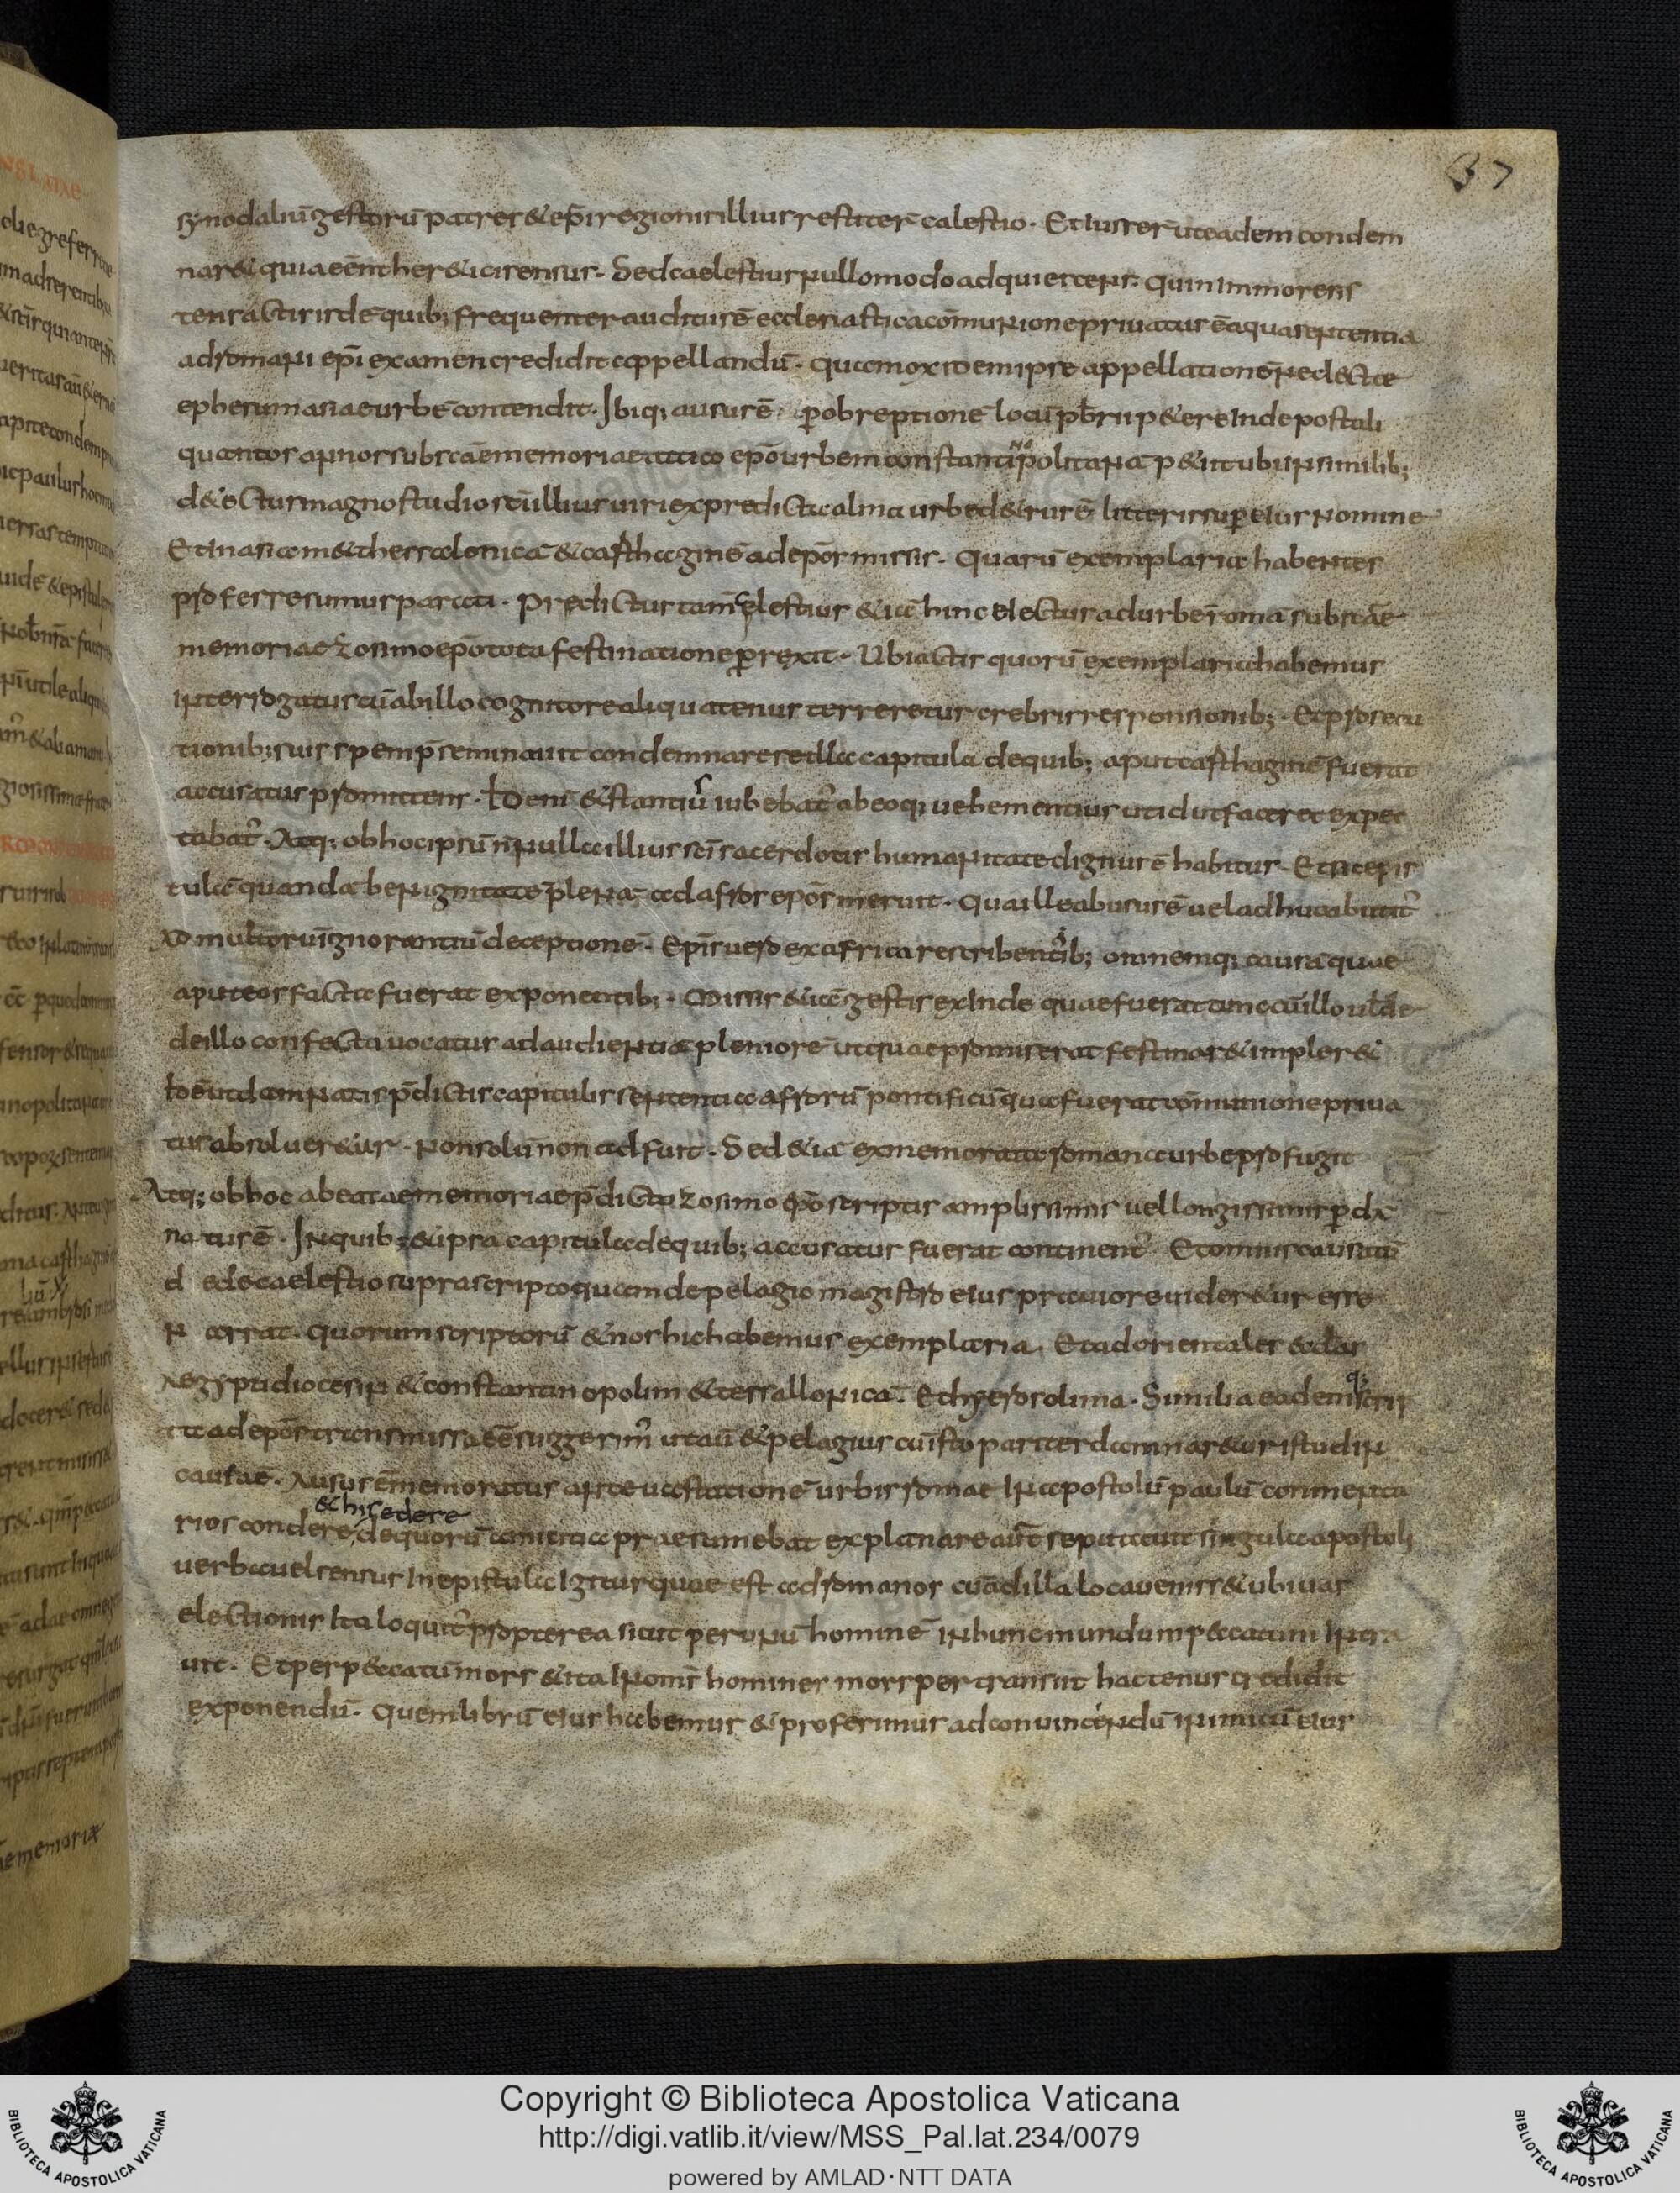 37
synodaliū gestorū patres & ep̄i regionis illius restiter̄ caelestio. Et iusser̄ ut eadem condem
nar& quia eēnt her&ici sensus. Sed caelestius nullo modo adquiescens. quin immo resis
tens actis isdē quib; frequenter auditus ē ecclesiastica cōmunione priuatus ē a qua sententia
ad romani ep̄i examen credidit appellandū. qua mox idem ipse appellationē neclecta
ephesum asiae urbē contendit. Ibiq; ausus ē p̱ obreptionē locū pb̄rii p&ere inde post ali
quantos annos sub sc̄ae memoriae attico ep̄o urbem constantinopolitanā p&iit ubi in similib;
d&ectus magno studio sc̄i illius uiri ex predicta alma urbe d&rusus ē litteris sup̱ eius nomine
Et in asiam & thessalonicā & carthaginē ad ep̄os missis. quarū exemplaria habentes
proferre sumus parati. Predictus tam̄ celestius &iā hinc electus ad urbē romā sub sc̄ae
memoriae zosimo ep̄o tota festinatione p̱rexit. Ubi actis quorū exemplaria habemus
interrogatus cū ab illo cognitore aliquatenus terreretur crebris responsionib;. Et prosecu
tionib; suis spem p̄seminauit condemnare se illa capitula de quib; aput carthaginē fuerat
accusatus promittens. hoc enī &stantius iubebat̄ ab eo q; uehementius ut id ut faceret expec
tabat̄. Atq; ob hoc ipsū n̄nulla illius sc̄i sacerdotis humanitate dignus ē habitus. Et ita epis
tulā quandā benignitate plenā ad afros ep̄os meruit. qua ille abusus ē uel adhuc abutit̄
Ad multorū ignorantiū deceptionē. Ep̄is uero ex africa rescribentib; omnemq; causā quae
aput eos facta fuerat exponentib;. Missis &iā gestis exinde quae fuerat tunc cū illo ul̄ de
de illo confecta uocatur ad audientiā pleniorē ut quae promiserat festinar& impler&
hoc ē ut damnatis p̄dictis capitulis sententia afrorū pontificū qua fuerat cōmunione priua
tus absoluer&ur. Non solū non adfuit. Sed &iā ex memorata romana urbe profugit
Atq; ob hoc a beatae memoriae p̄dicto zosimo ep̄o scriptis amplissimis uel longissimis p̱ dā
natus ē. In quib; & ipsa capitula de quib; accusatus fuerat continent̄. Et omnis causa tā
d e de caelestio suprascripto quam de pelagio magistro eius prauiore uider&ur esse
n arrat. quorum scriptorū & nos hic habemus exemplaria. Et ad orientales ecclas
Aegypti diocesin & constantinopolim & tessallonicā. Et hyerosolima. Similia eademq; scrip
ta ad ep̄os transmissa eē suggerim̄ ut aū & pelagius cū isto pariter damnar&ur istud in
causa ē. Ausus ē memoratus ante uastationē urbis romae in apostolū paulū commenta
rios condere & his edere de quorū amicitia praesumebat explanare aūt se putauit singula apostoli
uerba uel sensus In epistula igitur quae est ad romanos cū ad illa loca ueniss& ubi uas
electionis Ita loquit̄ propterea sicut per unū hominē in hunc mundum p&catum intra
uit. Et per p&catū mors & ita In om̄s homines mors pertransiit hactenus credidit
exponendū. Quem librū eius habemus & proferimus ad conuincendū inimicū eius
Copyright © Biblioteca Apostolica Vaticana
http://digi.vatlib.it/view/MSS_Pal.lat.234/0079
powered by AMLAD·NTT DATA
BIBLIOTECA APOSTOLICA VATICANA
BIBLIOTECA APOSTOLICA VATICANA